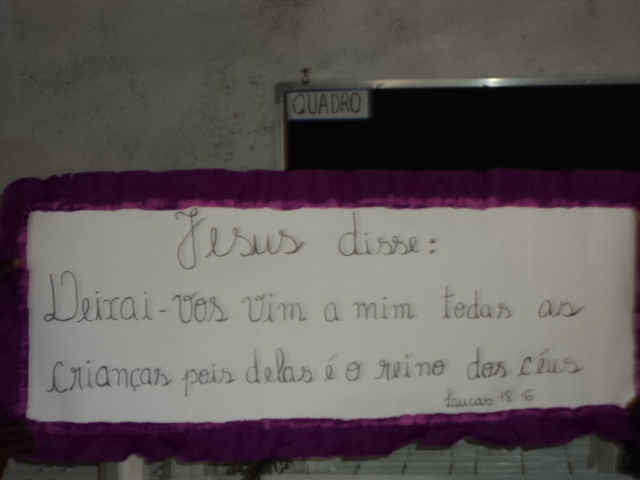 QUADRO
Jesus disse:
Deixai-vos vim a mim todas as
crianças pois delas é o reino dos céus
Lucas 18 16